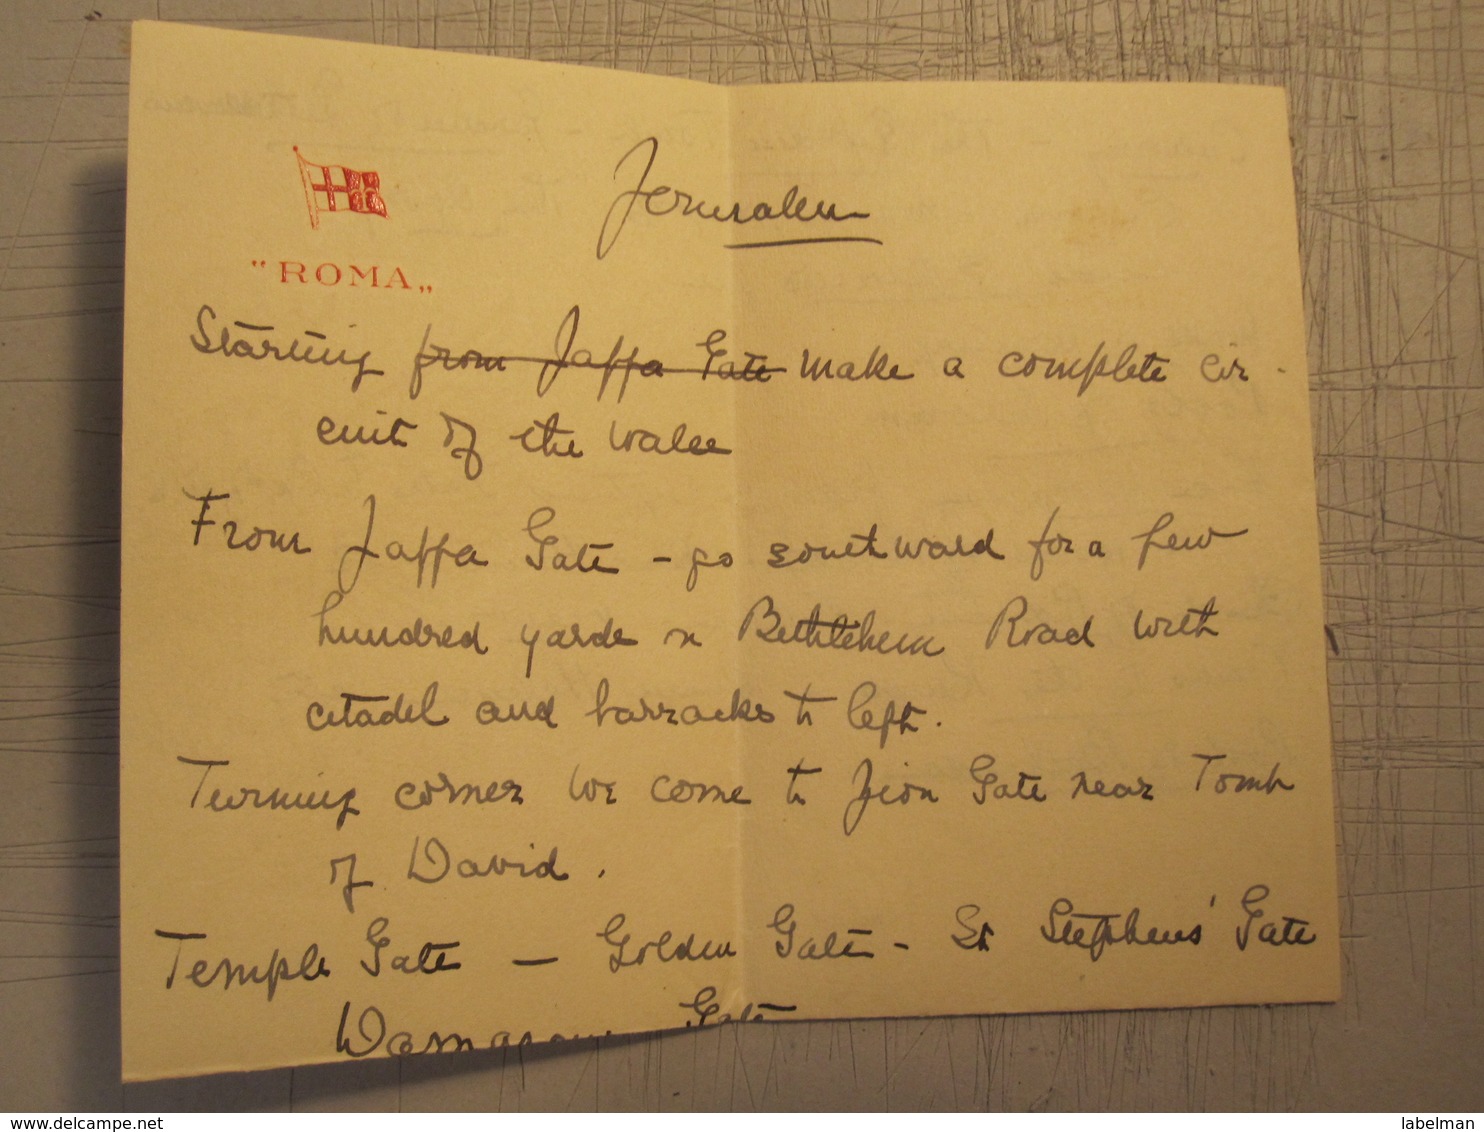 Jerusalem
"ROMA„
Starting from Jaffa Gate make a complete cir-
cuit of the walls
From Jaffa Gate - go southward for a few
hundred yards on Bethlehem Road with
citadel and barracks to left.
Turning corner we come to Zion Gate near Tomb
of David.
Temple Gate — Golden Gate - St Stephens' Gate
Damascus Gate
delcampe.net
labelman